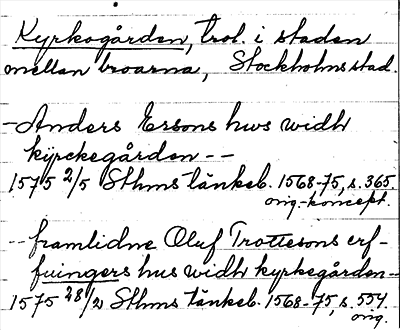 Kyrkogården, trol. i staden
mellan broarna, Stockholms stad.
- Anders Ersons hws widh
kÿrckegården - -
1575 2/5 Sthms tänkeb. 1568-75, s. 365.
orig.-koncept.
- - framlidne Oluf Trottesons erf-
fuingers hus widh kyrkegården - -
1575 28/2 Sthms tänkeb. 1568-75, s. 554
orig.